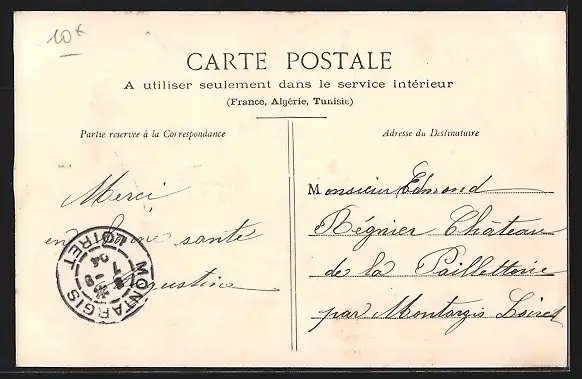 10€
CARTE POSTALE
A utiliser seulement dans le service intérieur
(France, Algérie, Tunisie)
Partie reservée à la Correspondance
Adresse du Destinataire
Merci
en bonne santé
Augustine
MONTARGIS
LOIRET
04
Monsieur Edmond
Régnier Château
de la Pailletterie
par Montargis Loiret